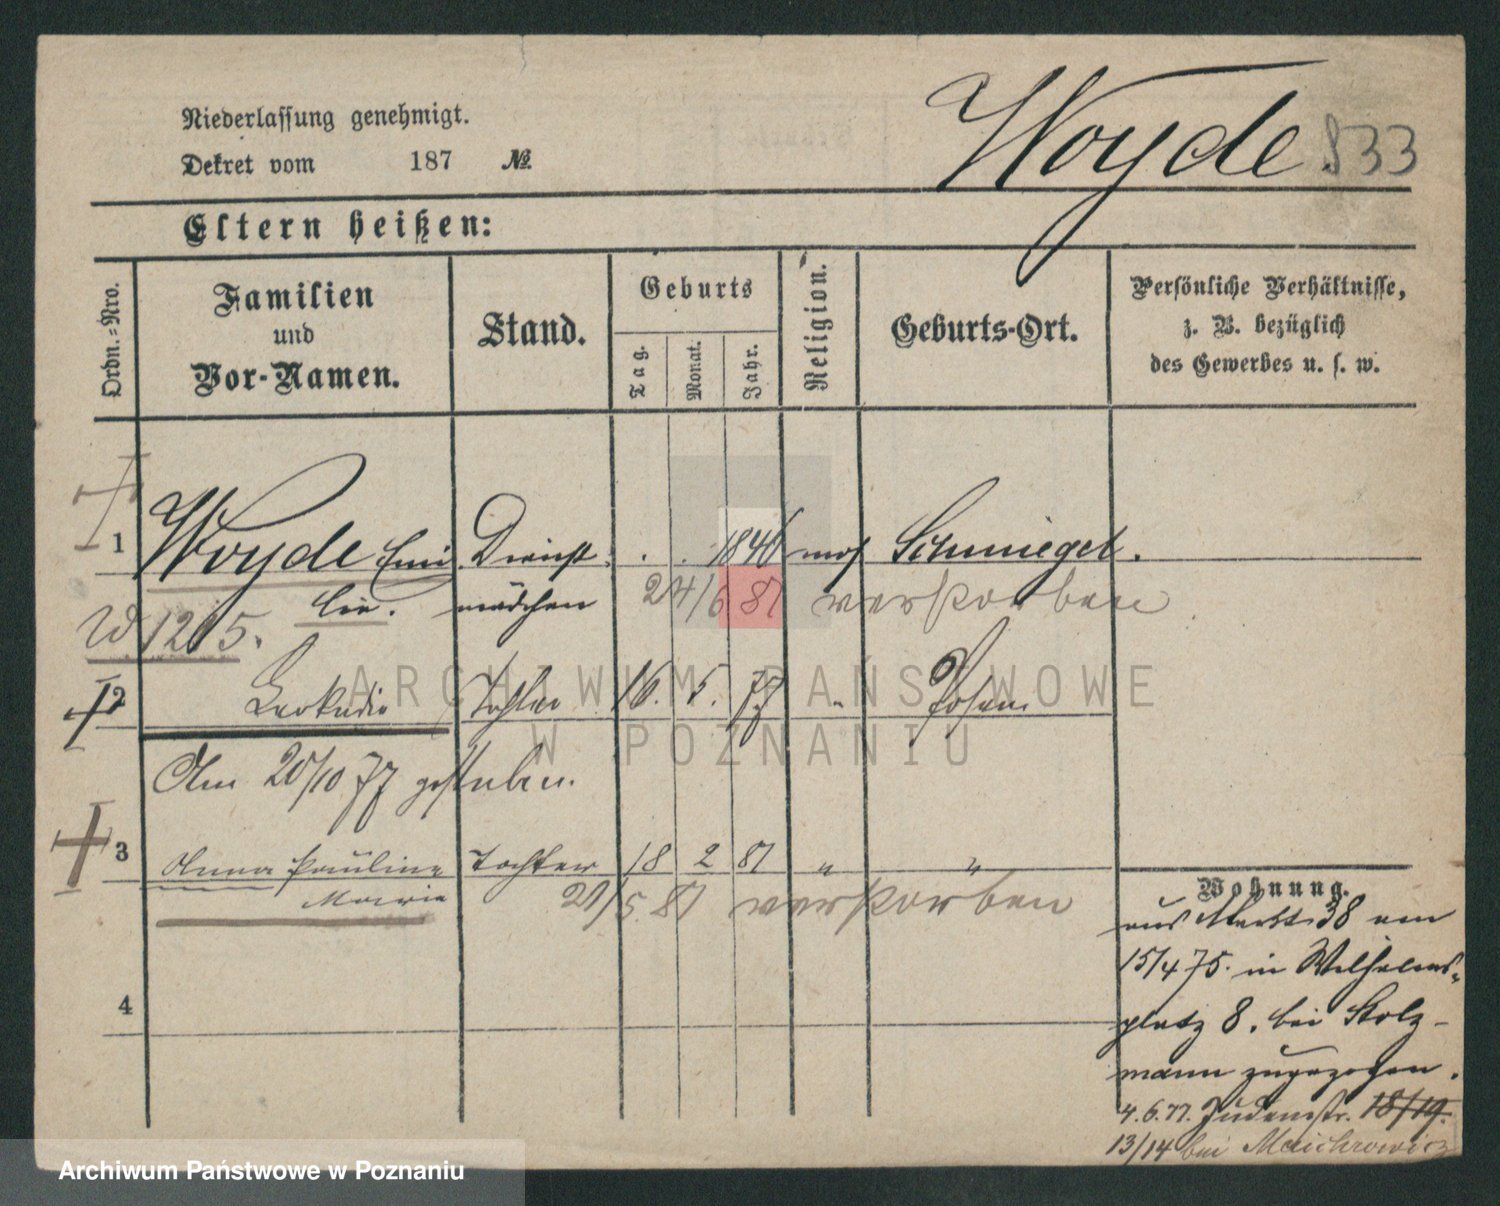 Niederlassung genehmigt.
Dekret vom 187 №
Woyde 833
Eltern heißen:
Ordn.=Nro.
Familien
und
Vor-Namen.
Stand.
Geburts
Tag.
Monat.
Jahr.
Religion.
Geburts-Ort.
Persönliche Verhältnisse,
z. B. bezüglich
des Gewerbes u. s. w.
1 Woyde Emi Dienst . . 1846 mos Schmiegel.
lie. mädchen 24/6 81 verstorben
W 1215.
2 Leokadie Tochter 16. 5. 77 " Posen
Am 20/10 77 gestorben.
3 Anna Pauline Tochter 18 2 81 " "
Marie 21/5. 81 verstorben
4
Wohnung.
aus Markt 38 am
15/4 75. in Wilhelms-
platz 8. bei Stolz-
mann zugezogen.
4.6.77. Judenstr. 18/19.
13/14 bei Maichrowicz
ARCHIWUM PAŃSTWOWE
W POZNANIU
Archiwum Państwowe w Poznaniu